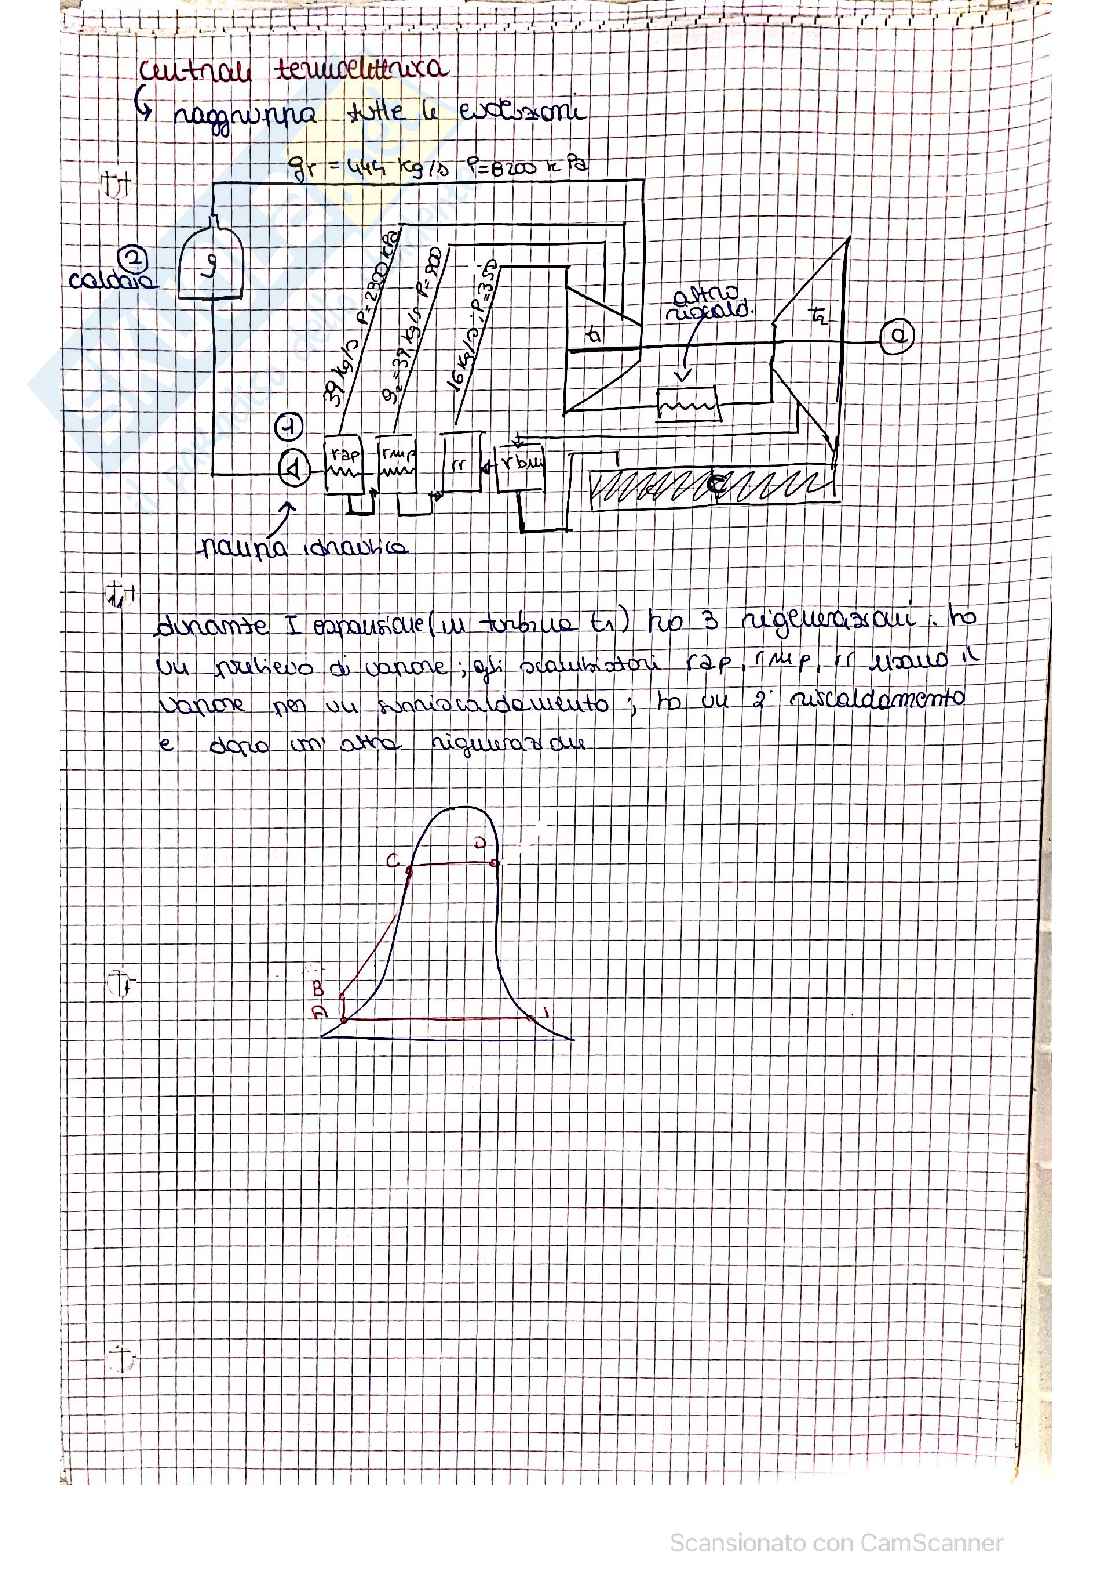 centrale termoelettrica
↳ raggruppa tutte le evoluzioni
gr = 444 kg/s P=8200 kPa
2
caldaia
g
39 kg/s P=2300 kPa
g2=39 kg/s P=900
16 kg/s ; P=350
t1
altro
riscald.
t2
a
1
rap
rmp
rr
rbm
c
pompa idraulica
durante I espansione (in turbina t1) ho 3 rigenerazioni : ho
un prelievo di vapore ; gli scambiatori rap, rmp, rr usano il
vapore per un surriscaldamento ; ho un 2° riscaldamento
e dopo un' altra rigenerazione
C
D
B
A
1
Scansionato con CamScanner